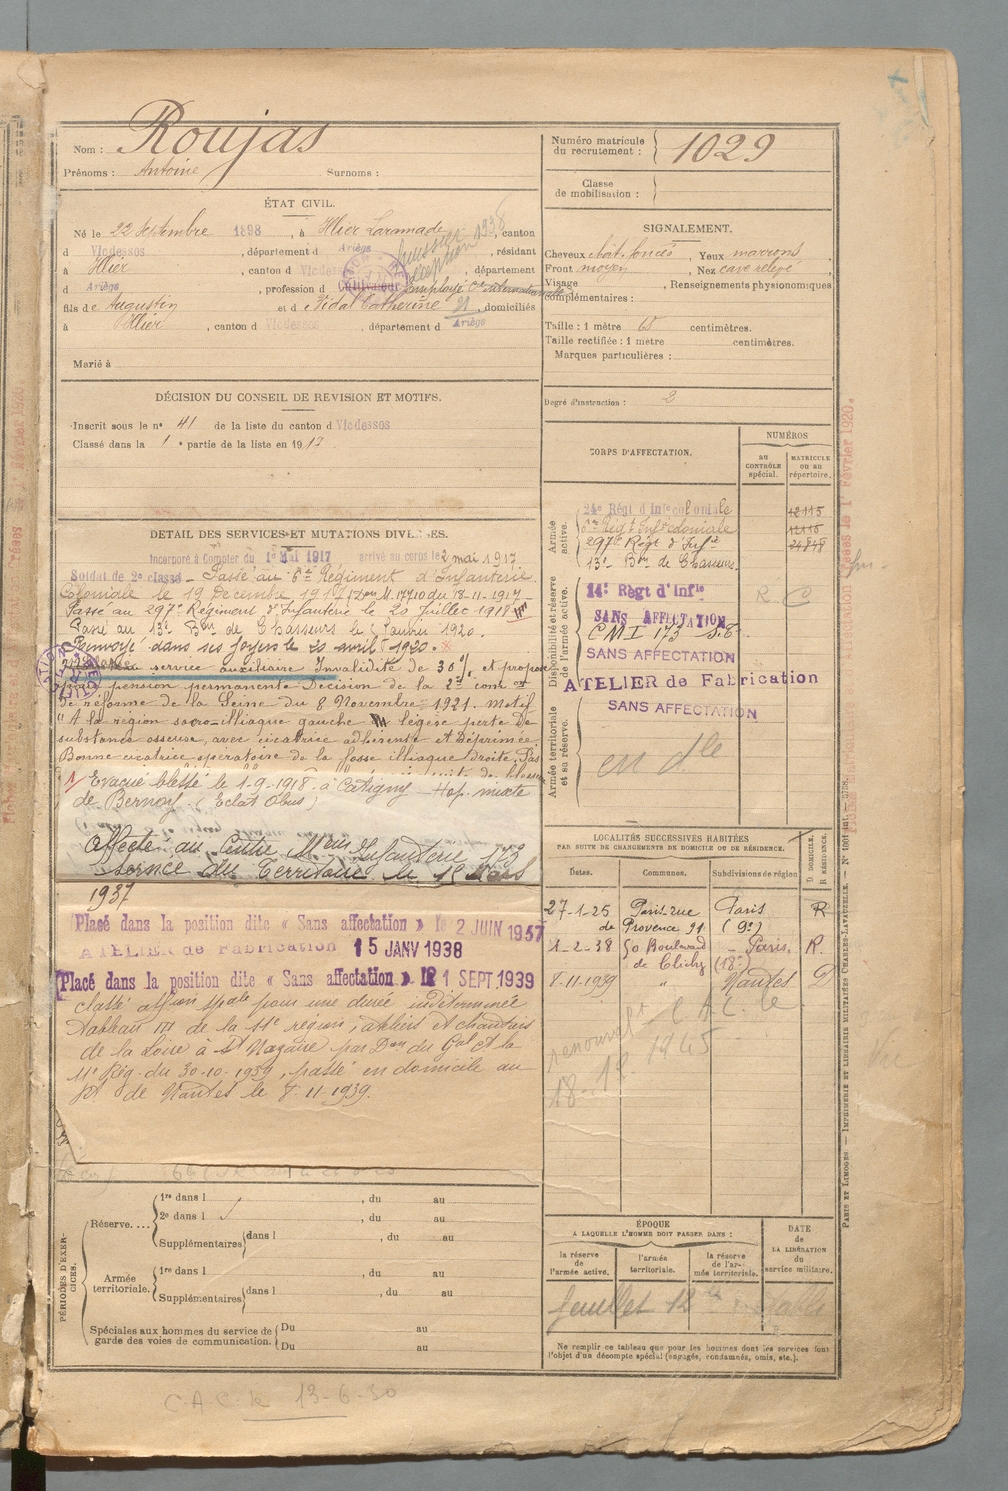 Nom : Roujas
Prénoms : Antoine Surnoms :
ÉTAT CIVIL.
Né le 22 Septembre 1898, à Illier Laramade, canton
d Vicdessos, département d Ariège, résidant
à Illier, canton d Vicdessos, département
d Ariège, profession d Cultivateur Employé
fils de Augustin et d Vidal Catherine, domiciliés
à Illier, canton d Vicdessos, département d Ariège
Marié à
DÉCISION DU CONSEIL DE REVISION ET MOTIFS.
Inscrit sous le n° 41 de la liste du canton d Vicdessos
Classé dans la 1e partie de la liste en 1917
DÉTAIL DES SERVICES ET MUTATIONS DIVERSES.
Incorporé à Compter du 1er Mai 1917 arrivé au corps le 2 mai 1917
Soldat de 2e classe - Passé au 6e Régiment d'Infanterie
Coloniale le 19 Décembre 1917 du 18-11-1917
Passé au 297e Régiment d'Infanterie le 20 Juillet 1918
Passé au 13e Bon de Chasseurs le 1920.
Renvoyé dans ses foyers le 20 avril 1920.
service auxiliaire Invalidité de 30 %, et proposé
pour pension permanente Décision de la 2e com on
de réforme de la Seine du 8 Novembre 1921. Motif
"A la région sacro-illiaque gauche légère perte de
substance osseuse, avec cicatrice adhérente et déprimée
Bonne cicatrice opératoire de la fosse illiaque droite. Pas
Evacué blessé le 1-9-1918 à Catigny Hop. mixte
de Bernay (Eclat Obus)
Affecté au Centre Mon Infanterie 173
service du Territoire le 15 Mars
1937
Placé dans la position dite « Sans affectation » le 2 JUIN 1937
ATELIER de Fabrication 15 JANV 1938
Placé dans la position dite « Sans affectation » le 1 SEPT 1939
classé affon spale pour une durée indéterminée
tableau III de la 11e région, ateliers et chantiers
de la Loire à St Nazaire par Don du Gal Ct la
11e Rég. du 30-10-1939, passé en domicile au
de Nantes le 8-11-1939.
PÉRIODES D'EXERCICES.
Réserve....
1re dans l , du au
2e dans l , du au
Supplémentaires dans l , du au
Armée territoriale.
1re dans l , du au
Supplémentaires dans l , du au
Spéciales aux hommes du service de garde des voies de communication.
Du au
Du au
C.A.C. le 13-6-30
Numéro matricule du recrutement : 1029
Classe de mobilisation :
SIGNALEMENT.
Cheveux chât. foncés, Yeux marrons
Front moyen, Nez cave relevé
Visage , Renseignements physionomiques
complémentaires :
Taille : 1 mètre 65 centimètres.
Taille rectifiée : 1 mètre centimètres.
Marques particulières :
Degré d'instruction : 2
CORPS D'AFFECTATION.
NUMÉROS
AU CONTRÔLE SPÉCIAL.
MATRICULE OU AU RÉPERTOIRE.
Armée active.
24e Régt d'Infie coloniale 12115
6e Régt Infie coloniale 12116
297e Régt d'Infie 24848
13e Bon de Chasseurs.
Disponibilité et réserve de l'armée active.
14e Règt d'Infie
SANS AFFECTATION
R C
CMI 173
SANS AFFECTATION
ATELIER de Fabrication
SANS AFFECTATION
Armée territoriale et sa réserve.
en dle
LOCALITÉS SUCCESSIVES HABITÉES
PAR SUITE DE CHANGEMENTS DE DOMICILE OU DE RÉSIDENCE.
Dates. Communes. Subdivisions de région D. DOMICILE. R. RÉSIDENCE.
27-1-25 Paris rue Paris R
de Provence 91 (9e)
1-2-38 50 Boulevard Paris. R.
de Clichy (18e)
8-11-1939 " Nantes D
C.A.C. le
18-12 1945
ÉPOQUE
A LAQUELLE L'HOMME DOIT PASSER DANS :
la réserve de l'armée active.
l'armée territoriale.
la réserve de l'armée territoriale.
DATE de LA LIBÉRATION du service militaire.
feuillet 12
Ne remplir ce tableau que pour les hommes dont les services font
l'objet d'un décompte spécial (engagés, condamnés, omis, etc.).
PARIS ET LIMOGES. — IMPRIMERIE ET LIBRAIRIE MILITAIRES CHARLES-LAVAUZELLE.